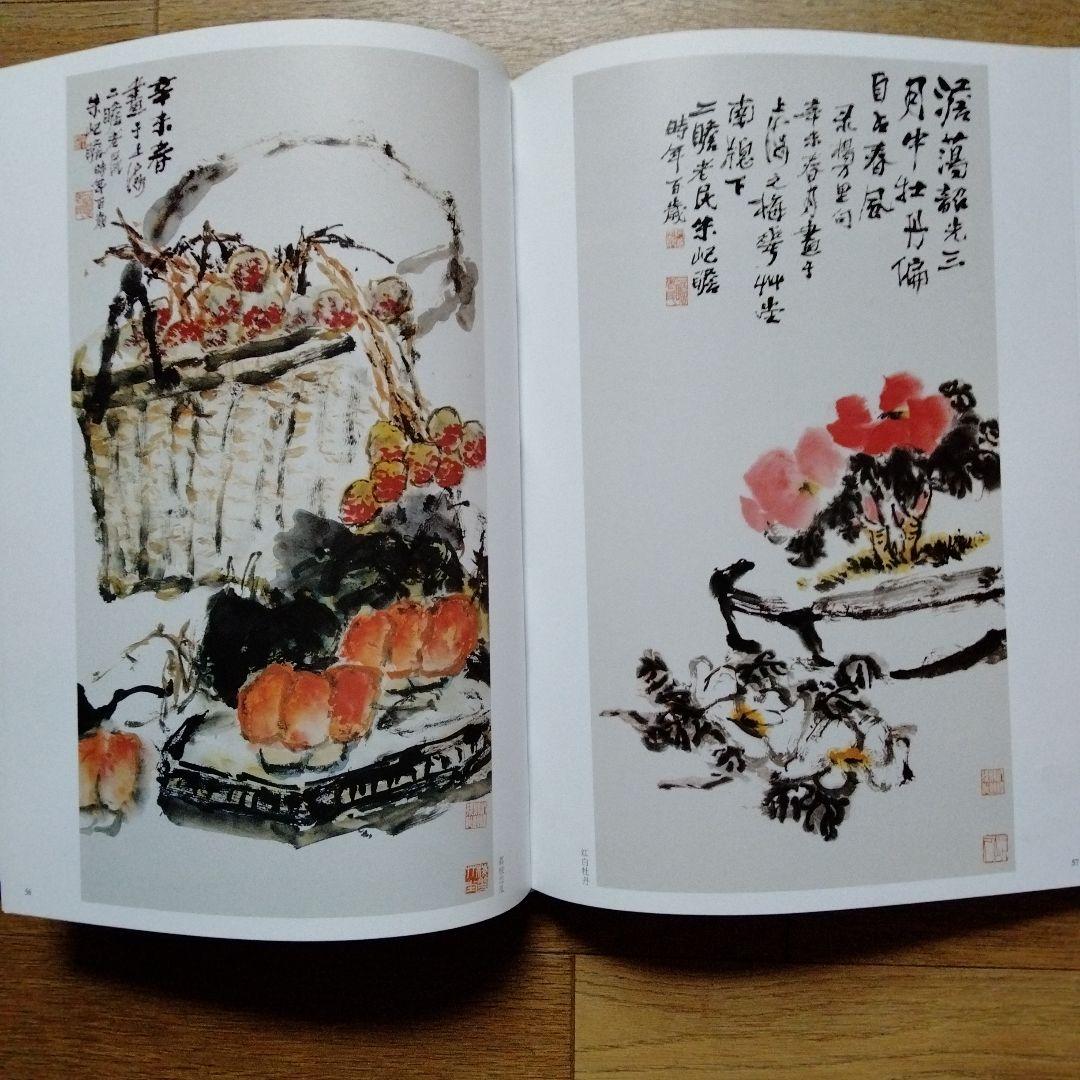 辛未春
畫于上海
二瞻老民
朱屺瞻時年百歲
56
澹蕩韶光三
月中牡丹偏
自占春風
录楊万里句
辛未春月畫于
上海之梅華艸堂
南窻下
二瞻老民朱屺瞻
時年百歲
红白牡丹
57